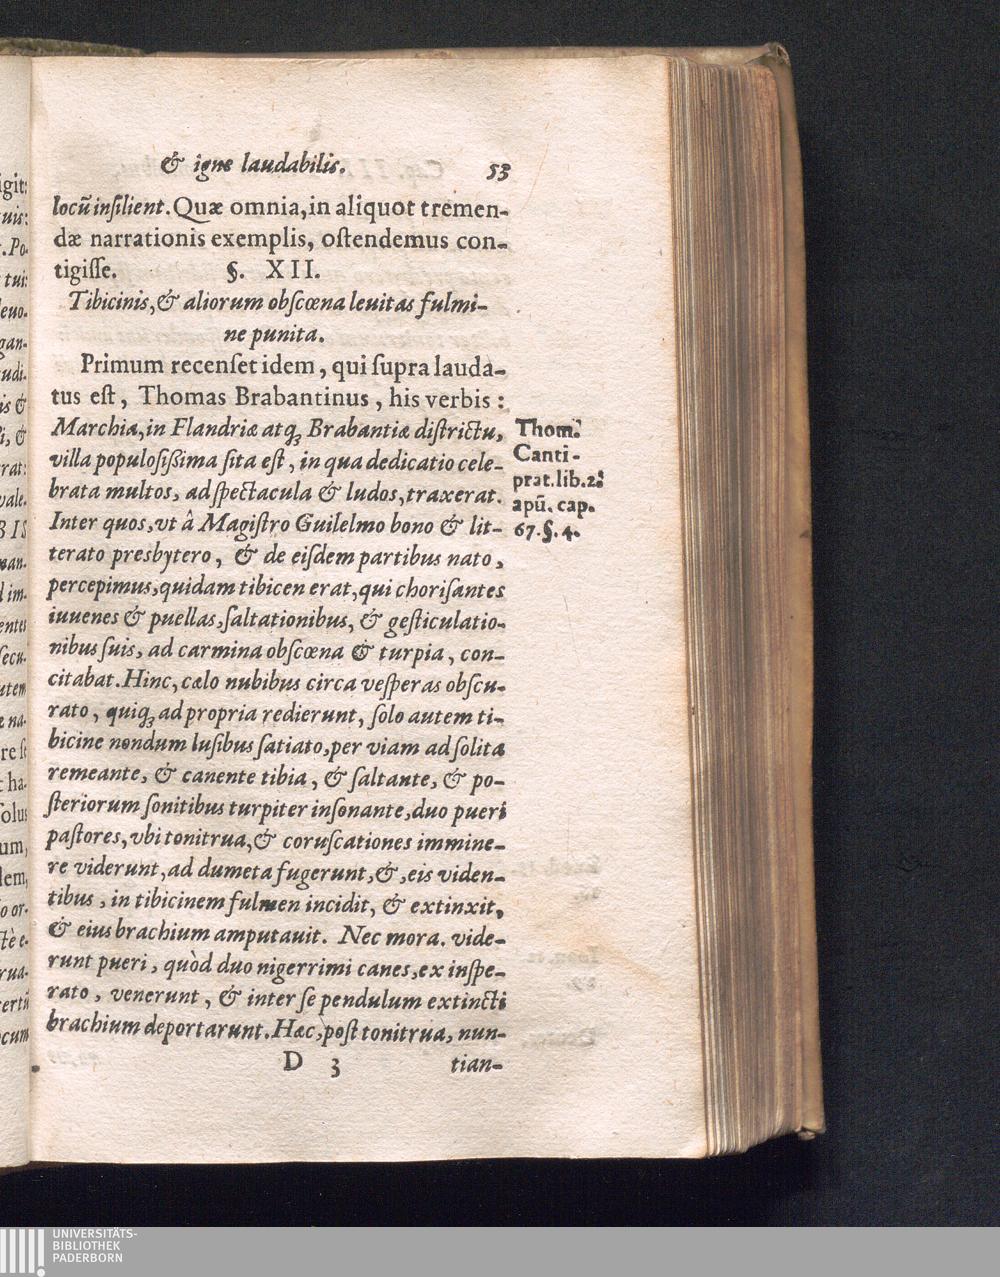 & igne laudabilis. 53
locũ insilient. Quæ omnia, in aliquot tremen-
dæ narrationis exemplis, ostendemus con-
tigisse. §. XII.
Tibicinis, & aliorum obscœna leuitas fulmi-
ne punita.
Primum recenset idem, qui supra lauda-
tus est, Thomas Brabantinus, his verbis:
Marchia, in Flandriæ atq; Brabantiæ districtu,
villa populosissima sita est, in qua dedicatio cele-
brata multos, ad spectacula & ludos, traxerat.
Inter quos, vt â Magistro Guilelmo bono & lit-
terato presbytero, & de eisdem partibus nato,
percepimus, quidam tibicen erat, qui chorisantes
iuuenes & puellas, saltationibus, & gesticulatio-
nibus suis, ad carmina obscœna & turpia, con-
citabat. Hinc, cælo nubibus circa vesperas obscu-
rato, quiq; ad propria redierunt, solo autem ti-
bicine nondum lusibus satiato, per viam ad solita
remeante, & canente tibia, & saltante, & po-
steriorum sonitibus turpiter insonante, duo pueri
pastores, vbi tonitrua, & coruscationes immine-
re viderunt, ad dumeta fugerunt, &, eis viden-
tibus, in tibicinem fulmen incidit, & extinxit,
& eius brachium amputauit. Nec mora. vide-
runt pueri, quòd duo nigerrimi canes, ex inspe-
rato, venerunt, & inter se pendulum extincti
brachium deportarunt. Hæc, post tonitrua, nun-
D 3 tian-
Thom.
Canti-
prat. lib. 2.
apũ. cap.
67. §. 4.
UNIVERSITÄTS-
BIBLIOTHEK
PADERBORN